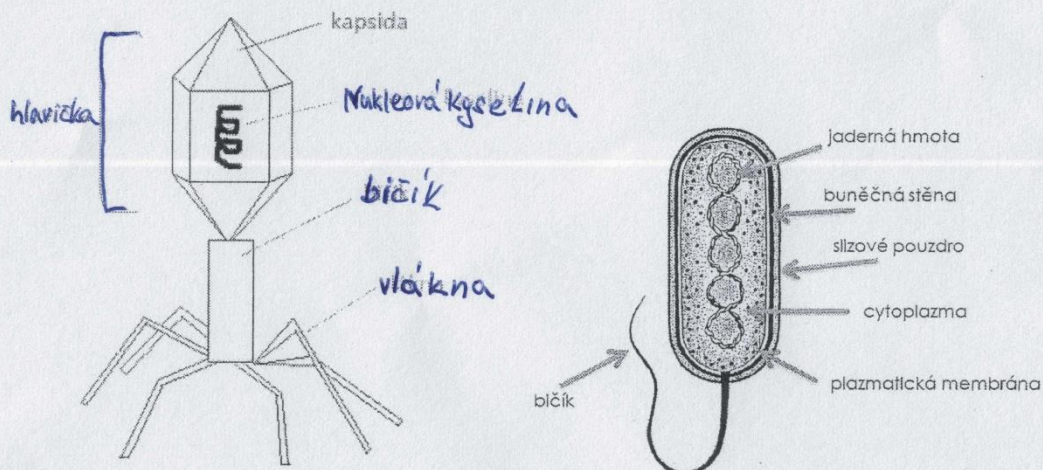 kapsida
hlavička
Nukleová kyselina
bičík
vlákna
jaderná hmota
buněčná stěna
slizové pouzdro
cytoplazma
plazmatická membrána
bičík